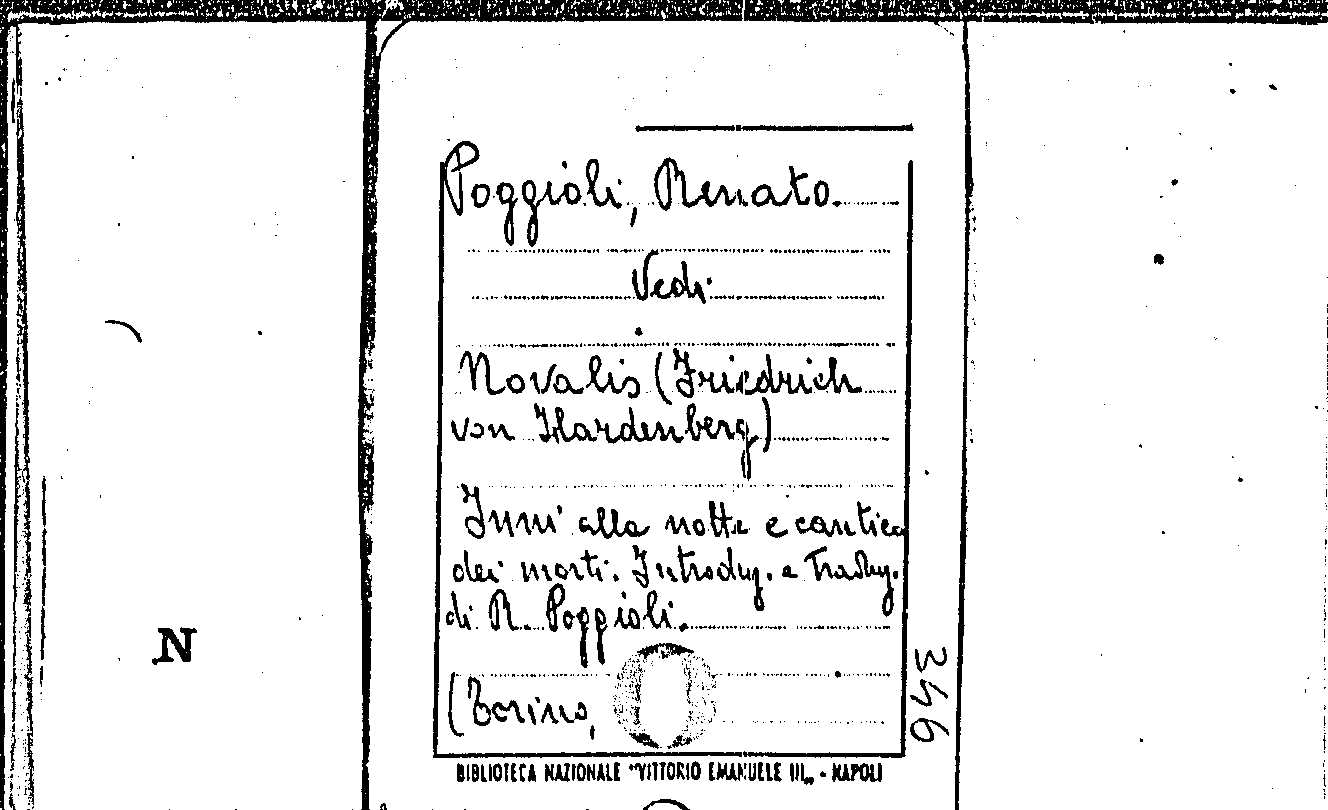 Poggioli, Renato.
Vedi
Novalis (Friedrich
von Hardenberg)
Inni alla notte e cantica
dei morti. Introduz. e Traduz.
di R. Poggioli.
(Torino,
BIBLIOTECA NAZIONALE "VITTORIO EMANUELE III„ - NAPOLI
346
N